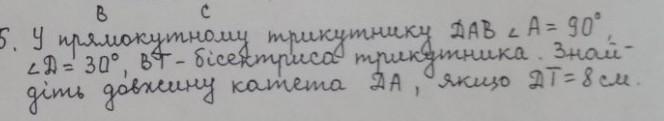 B C
5. У прямокутному трикутнику DAB ∠A = 90°,
∠D = 30°, BT - бісектриса трикутника. Знай-
діть довжину катета DA, якщо DT = 8 см.